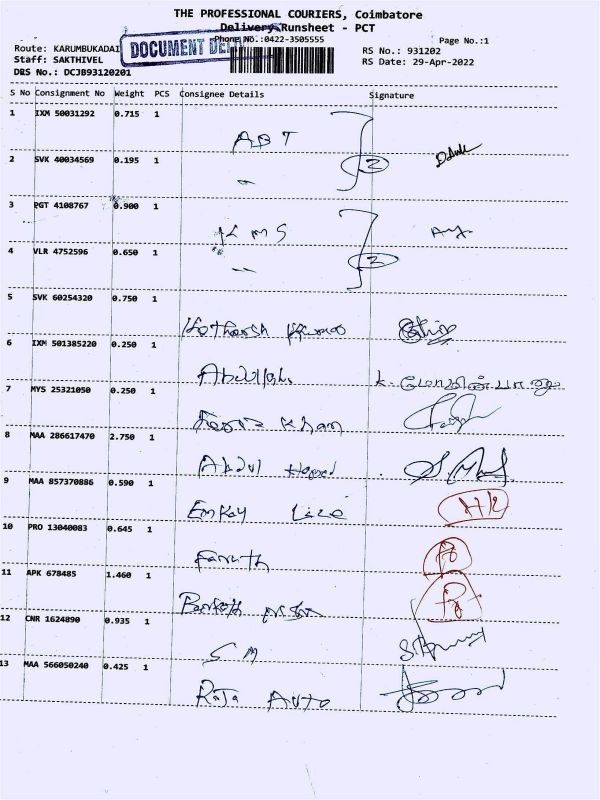 THE PROFESSIONAL COURIERS, Coimbatore
Delivery Runsheet - PCT
Phone No.:0422-3505555
Page No.:1
Route: KARUMBUKADAI
DOCUMENT
RS No.: 931202
Staff: SAKTHIVEL
RS Date: 29-Apr-2022
DRS No.: DCJB93120201
S No Consignment No Weight PCS Consignee Details Signature
1 IXM 50031292 0.715 1
A D T 2
2 SVK 40034569 0.195 1
3 PGT 4108767 0.900 1
K M S 2
4 VLR 4752596 0.650 1
5 SVK 60254320 0.750 1
6 IXM 501385220 0.250 1
7 MYS 25321050 0.250 1
Khan
8 MAA 286617470 2.750 1
Abdul
9 MAA 857370886 0.590 1
Emkay
10 PRO 13040083 0.645 1
11 APK 678485 1.460 1
12 CNR 1624890 0.935 1
S M
13 MAA 566050240 0.425 1
Raja Auto